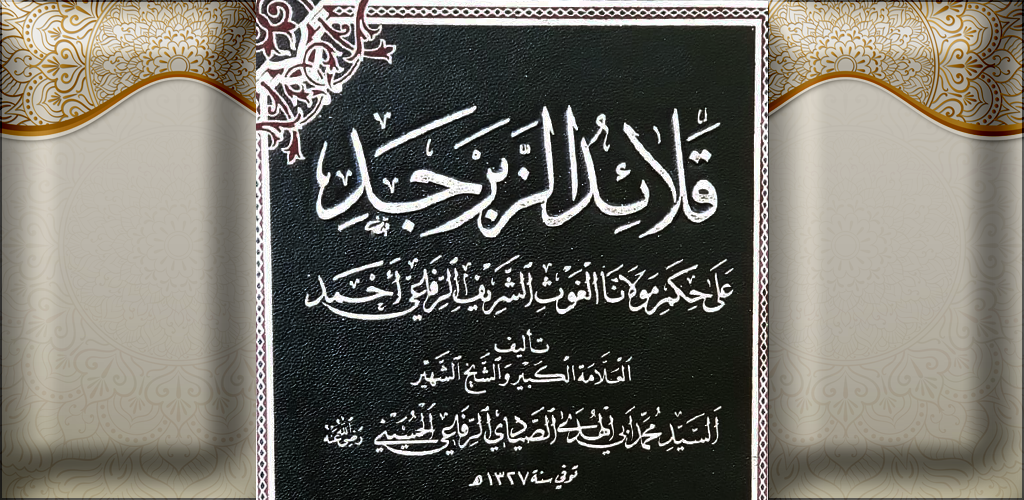 قَلَائِدُ الزَّبَرْجَدِ
عَلَى حِكَمِ مَوْلَانَا الْغَوْثِ الشَّرِيفِ الرِّفَاعِي أَحْمَد
تأليف
الْعَلَّامَةِ الْكَبِيْرِ وَالشَّيْخِ الشَّهِيْرِ
السَّيِّدِ مُحَمَّد أَبِي الْهُدَى الصَّيَّادِي الرِّفَاعِي الْحُسَيْنِي رضي الله عنه
توفي سنة ١٣٢٧ هـ